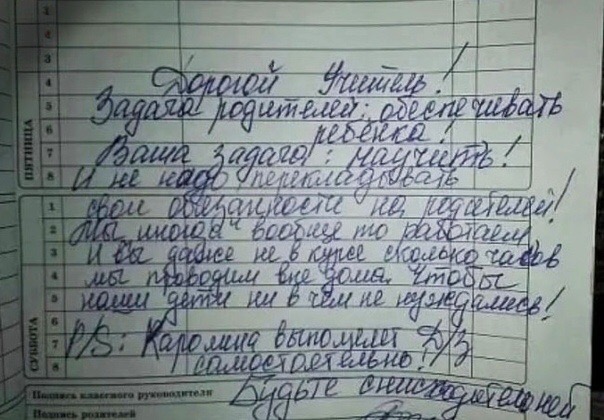 1
2
3
4 Дорогой Учитель!
5 Задача родителей: обеспечивать
6 ребёнка!
7 Ваша задача: научить!
8 И не надо перекладывать
ПЯТНИЦА
1 свои обязанности на родителей!
2 Мы иногда вообще то работаем
3 И вы даже не в курсе сколько часов
4 мы проводим вне дома, чтобы
5 наши дети ни в чём не нуждались!
6
7 P/S: Каролина выполняет Д/З
8 самостоятельно!
СУББОТА
Подпись классного руководителя Будьте снисходительней
Подпись родителей